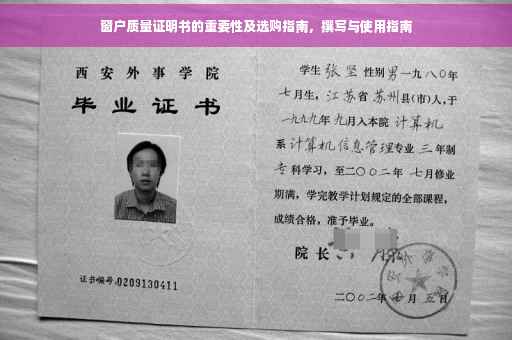 窗户质量证明书的重要性及选购指南，撰写与使用指南
西安外事学院
毕业证书
证书编号:0209130411
学生张坚性别男一九八〇年
七月生，江苏省苏州县(市)人，于
一九九九年九月入本院计算机
系计算机信息管理专业三年制
专科学习，至二〇〇二年七月修业
期满，学完教学计划规定的全部课程，
成绩合格，准予毕业。
院长
二〇〇二年 月五日